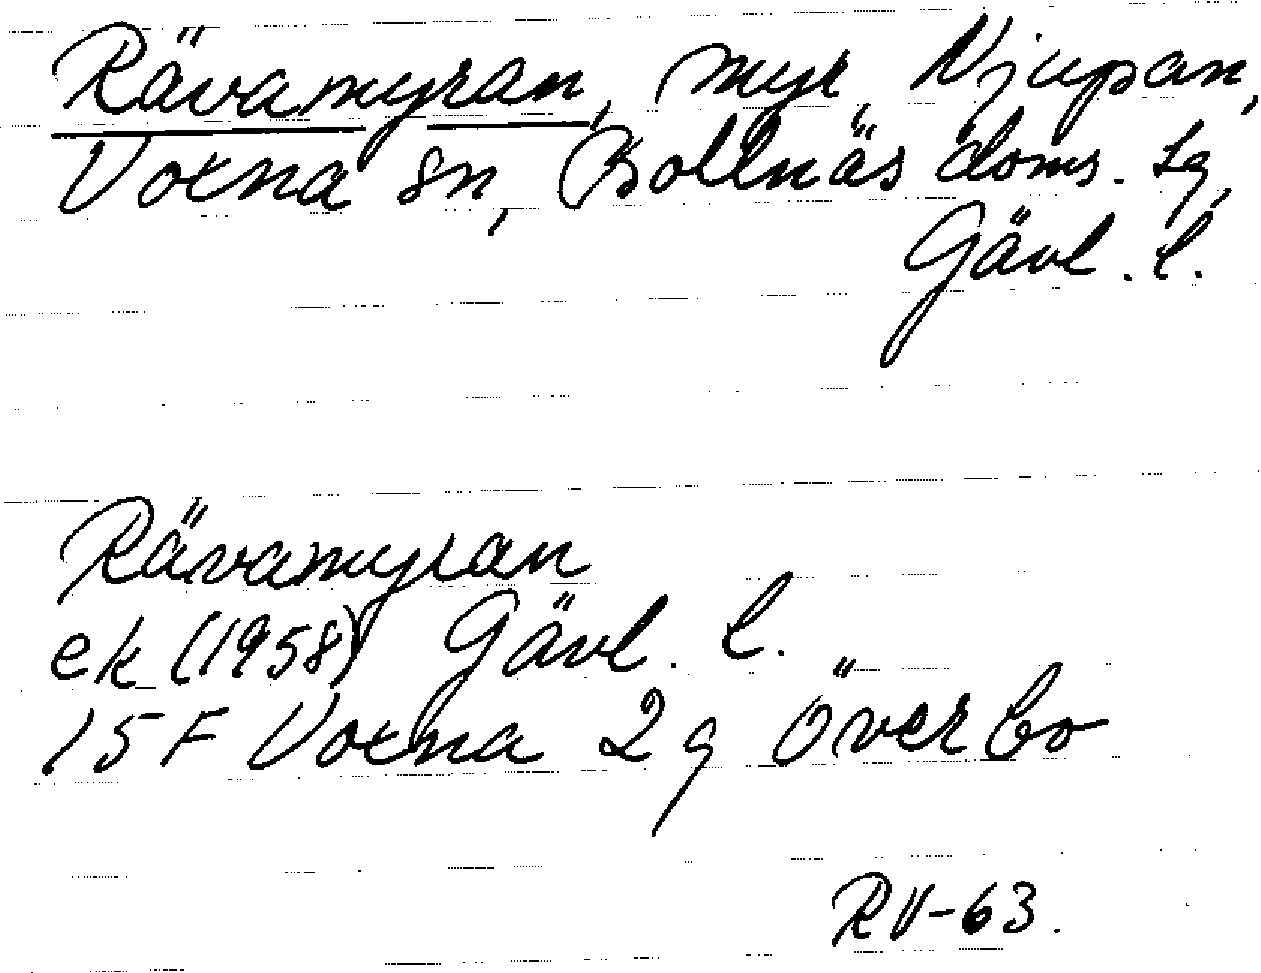 Rävamyran, myr, Njupan,
Voxna sn, Bollnäs doms. sg,
Gävl. l.
Rävamyran
ek (1958) Gävl. l.
15 F Voxna 2 g Överbo
RV-63.